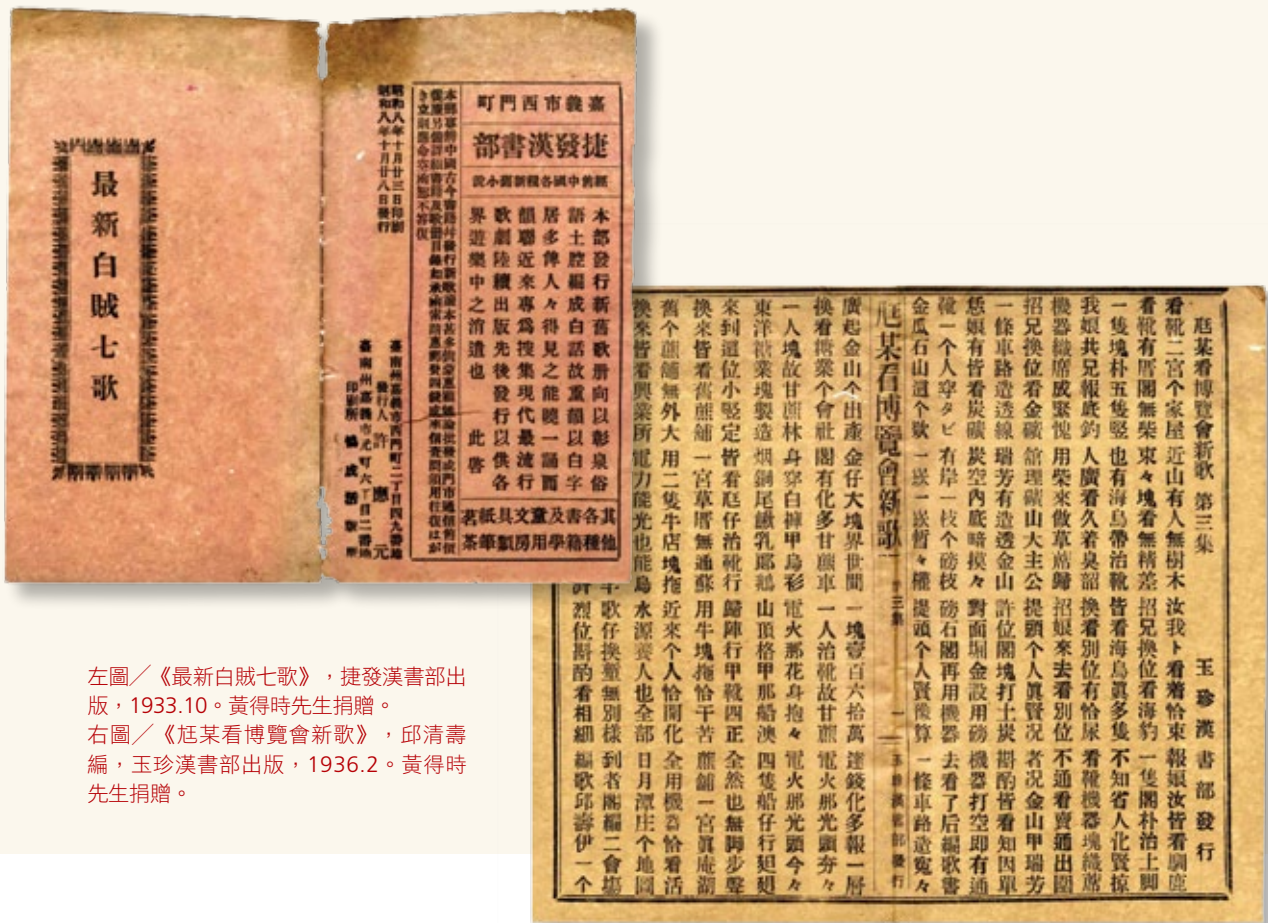 最新白賊七歌
嘉義市西門町
捷發漢書部
經售中國各種新舊小說
本部發行新舊歌册向以彰泉俗
語土腔編成白話故重韻以白字
居多俾人々得見之能曉一誦而
韻聯近來專爲搜集現代最流行
歌劇陸續出版先後發行以供各
界遊樂中之消遣也 此啓
其他各種書籍及學童用文房具類紙筆茗茶
昭和八年十月廿三日印刷
昭和八年十月廿八日發行
臺南州嘉義市西門町二丁目四九番地
發行人 許應元
臺南州嘉義市元町六丁目二番地
印刷所 協成活版所
尫某看博覽會新歌 第三集 玉珍漢書部發行
看靴二宮个家屋 近山有人無樹木 汝我卜看着恰束 報娘汝皆看馴鹿
看靴有厝閣無柴 束々塊看無精差 招兄換位看海豹 一隻閣朴治土脚
一隻塊朴五隻竪 也有海鳥帶治靴 皆看海鳥眞多隻 不知省人化賢掠
我娘共兄報底釣 人廣看久着臭詔 換看別位有恰尿 看靴機器塊織蓆
機器織席成緊愧 用柴來做草蓆歸 招娘來去看別位 不通看賣通出圍
招兄換位看金礦 舘理礦山大主公 提頭个人眞賢况 者况金山甲瑞芳
一條車路造透線 瑞芳有造透金山 許位閣塊打土炭 斟酌皆看知因單
恁娘有皆看炭礦 炭空內底暗摸々 對面堀金設用磅 機器打空即有通
靴一个人穿タビ 有岸一枝个磅枝 磅石閣再用機器 去看了后編歌書
金瓜石山這个欵 一嵌一嵌暫々權 提頭个人賢像算 一條車路造寃々
尫某看博覽會新歌 第三集 一 玉珍漢書部發行
廣起金山个出產 金仔大塊界世間 一塊壹百六拾萬 達錢化多報一層
換看糖業个會社 閣有化多甘蔗車 一人治靴故甘蔗 電火那光頭夯々
一人塊故甘蔗林 身穿白褲甲烏衫 電火那花身抱々 電火那光頭今々
東洋糖業塊製造 烟銅尾 山頂格甲那船澳 四隻船仔行廻廻
來到這位小竪定 皆看尫仔治靴行 歸陣行甲靴四正 全然也無脚步聲
換來皆看舊蔗舖 一宮草厝無通蘇 用牛塊拖恰干苦 蔗舖一宮眞庵湖
舊个蔗舖無外大 用二隻牛店塊拖 近來个人恰開化 全用機器恰看活
換來皆看興業所 電力能光也能烏 水源養人也全部 日月潭庄个地圖
歌仔換葷無別樣 到者閣編二會塲
烈位斟酌看相細 編歌邱壽伊一个
左圖╱《最新白賊七歌》，捷發漢書部出
版，1933.10。黃得時先生捐贈。
右圖╱《尪某看博覽會新歌》，邱清壽
編，玉珍漢書部出版，1936.2。黃得時
先生捐贈。